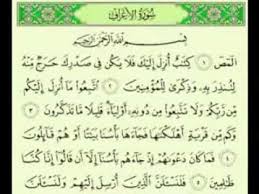 سُورَةُ الأَعْرَافِ
بِسْمِ ٱللَّهِ ٱلرَّحْمَٰنِ ٱلرَّحِيمِ
الٓمٓصٓ ١ كِتَٰبٌ أُنزِلَ إِلَيْكَ فَلَا يَكُن فِى صَدْرِكَ حَرَجٌ مِّنْهُ
لِتُنذِرَ بِهِۦ وَذِكْرَىٰ لِلْمُؤْمِنِينَ ٢ ٱتَّبِعُوا۟ مَآ أُنزِلَ إِلَيْكُم
مِّن رَّبِّكُمْ وَلَا تَتَّبِعُوا۟ مِن دُونِهِۦٓ أَوْلِيَآءَ قَلِيلًا مَّا تَذَكَّرُونَ ٣
وَكَم مِّن قَرْيَةٍ أَهْلَكْنَٰهَا فَجَآءَهَا بَأْسُنَا بَيَٰتًا أَوْ هُمْ قَآئِلُونَ
٤ فَمَا كَانَ دَعْوَىٰهُمْ إِذْ جَآءَهُم بَأْسُنَآ إِلَّآ أَن قَالُوٓا۟ إِنَّا كُنَّا
ظَٰلِمِينَ ٥ فَلَنَسْـَٔلَنَّ ٱلَّذِينَ أُرْسِلَ إِلَيْهِمْ وَلَنَسْـَٔلَنَّ